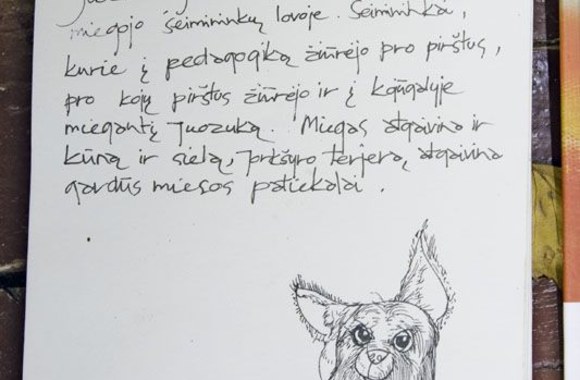 miegojo šeimininkų lovoje. Šeimininkai,
kurie į pedagogiką žiūrėjo pro pirštus,
pro kojų pirštus žiūrėjo ir į kojūgalyje
miegantį Juozuką. Miegas atgaivina ir
kūną ir sielą, jorkšyro terjerą, atgaivina
gardūs mėsos patiekalai.